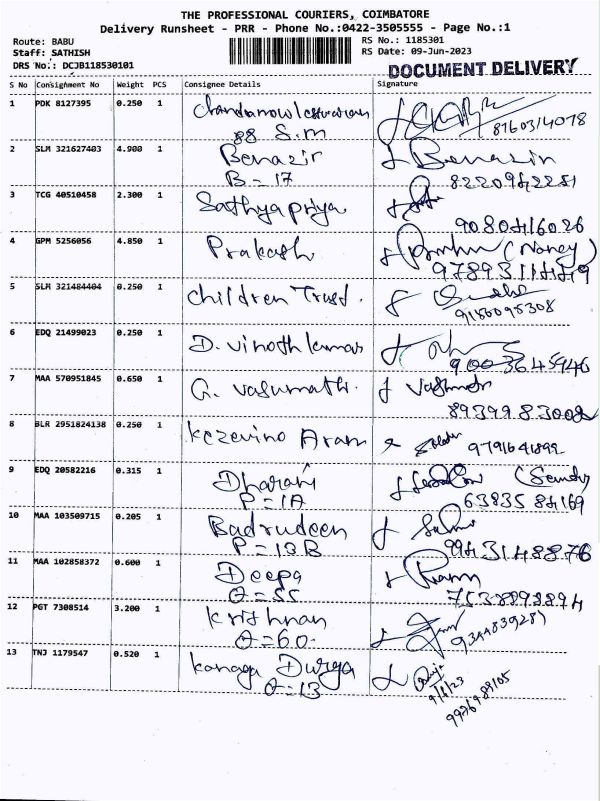 THE PROFESSIONAL COURIERS, COIMBATORE
Delivery Runsheet - PRR - Phone No.:0422-3505555 - Page No.:1
Route: BABU
RS No.: 1185301
Staff: SATHISH
RS Date: 09-Jun-2023
DRS No.: DCJB118530101
DOCUMENT DELIVERY
S No Consignment No Weight PCS Consignee Details Signature
1 PDK 8127395 0.250 1
88 S.m
8760314078
2 SLM 321627403 4.900 1 Benazir Benazir
B = 17
8220962281
3 TCG 40510458 2.300 1 Sathyapriya
9080416026
4 GPM 5256056 4.850 1 Prakash
5 SLM 321484404 0.250 1 children Trust.
9186095308
6 EDQ 21499023 0.250 1 D. vinoth kumar
9003645946
7 MAA 570951845 0.650 1 G. vasumathi.
8939983002
8 BLR 2951824138 0.250 1 Aram
9791641892
9 EDQ 20582216 0.315 1 Dharani
P = 1A
10 MAA 103509715 0.205 1 Badrudeen
P = 13B
9943148876
11 MAA 102858372 0.600 1 Deepa
12 PGT 7308514 3.200 1 krithnan
13 TNJ 1179547 0.520 1 kanaga Durga